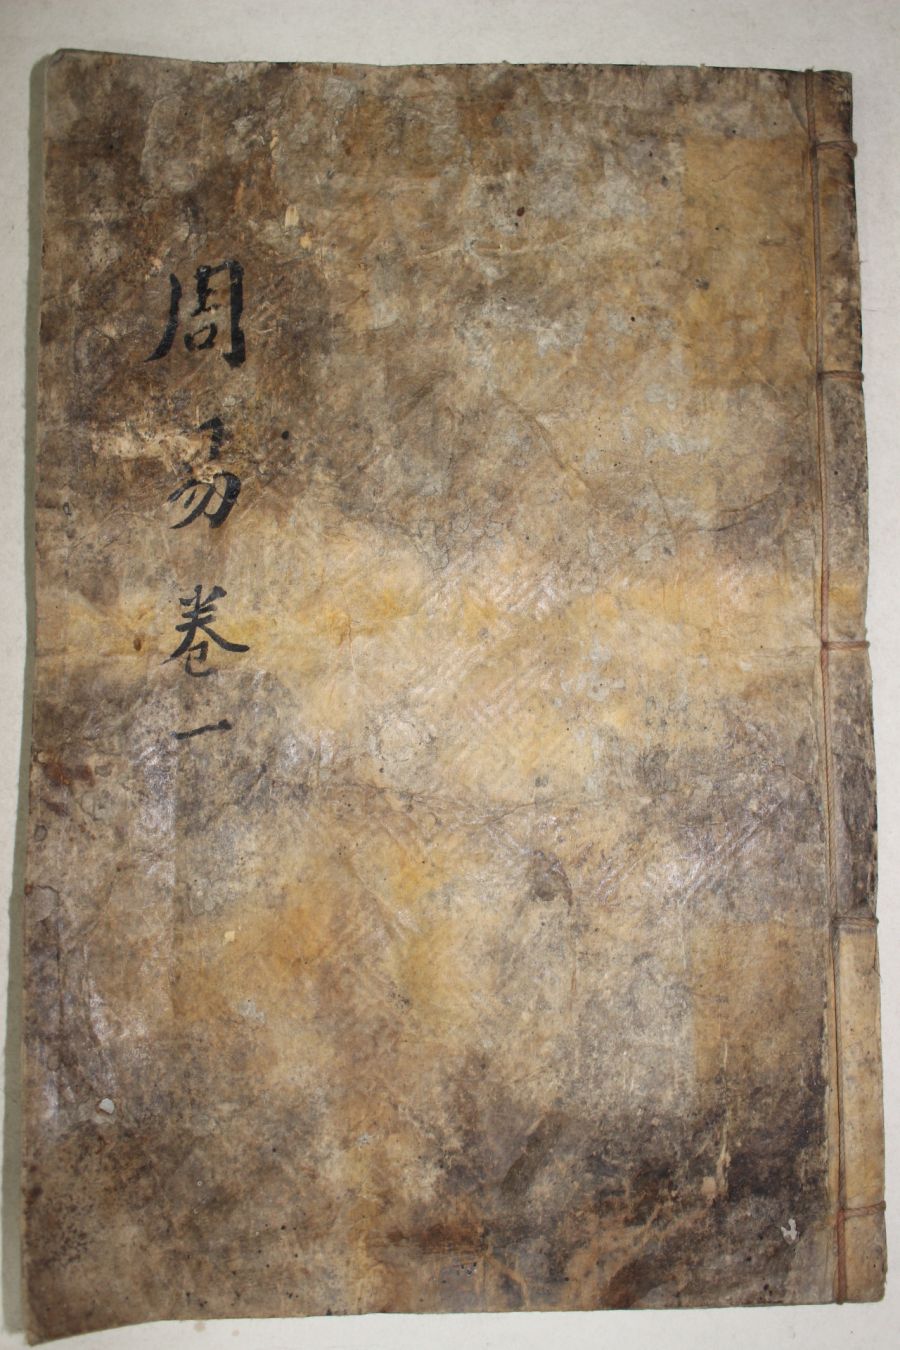 周易卷一